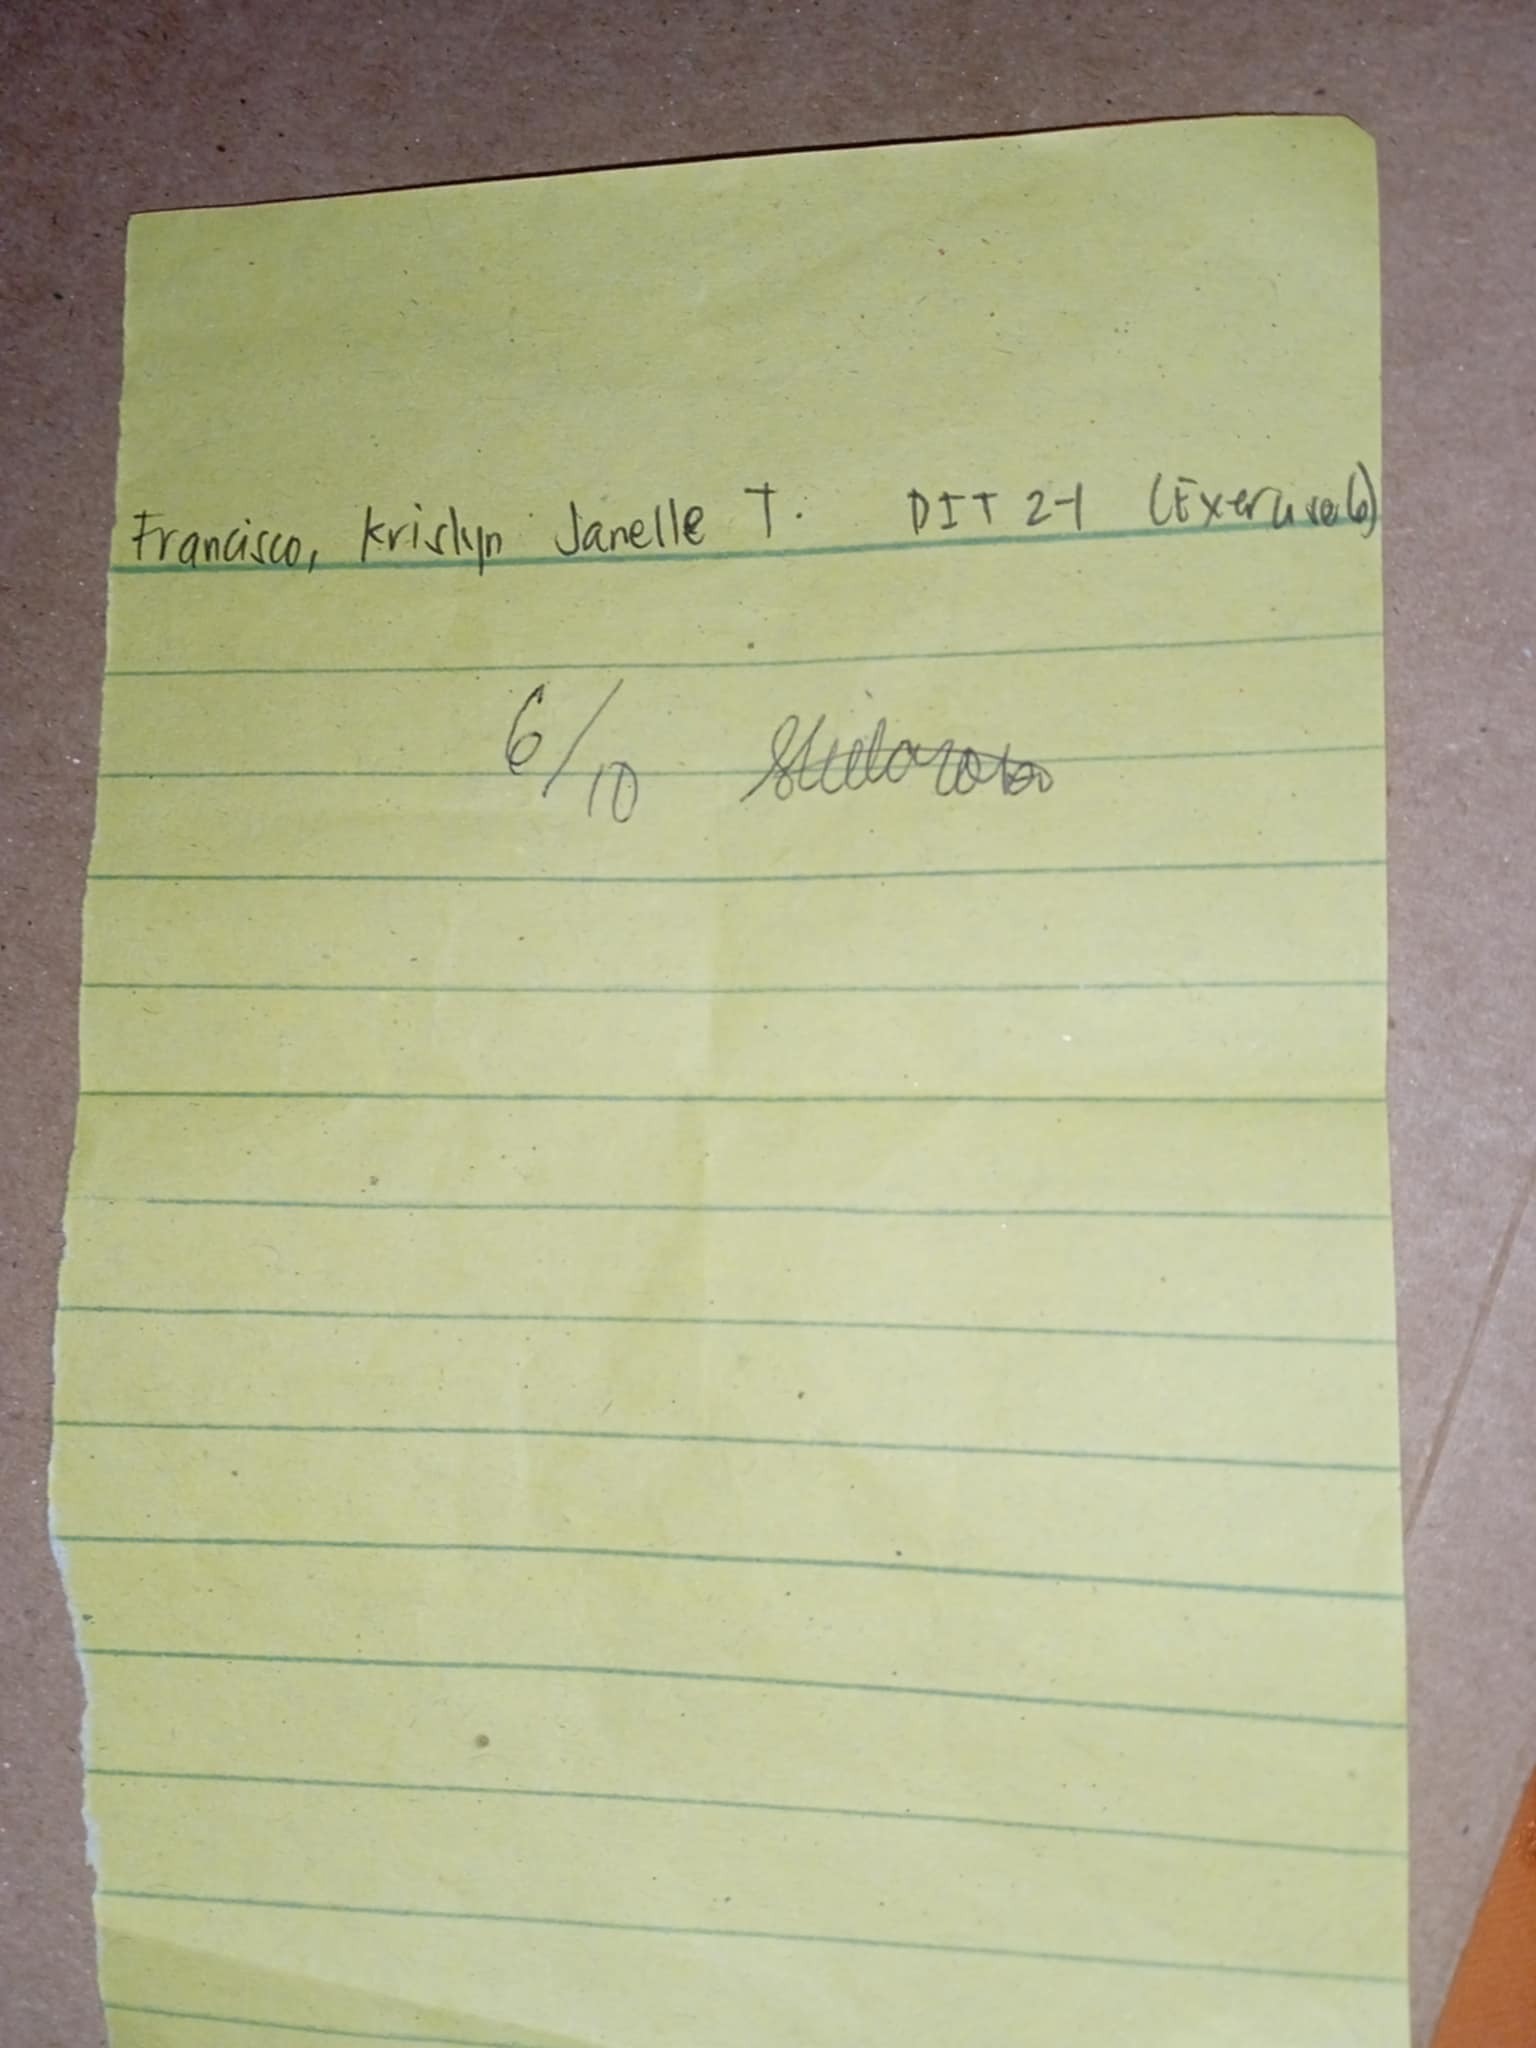 Francisco, Krislyn Janelle T. DIT 2-1 (Exercise 6)
6/10